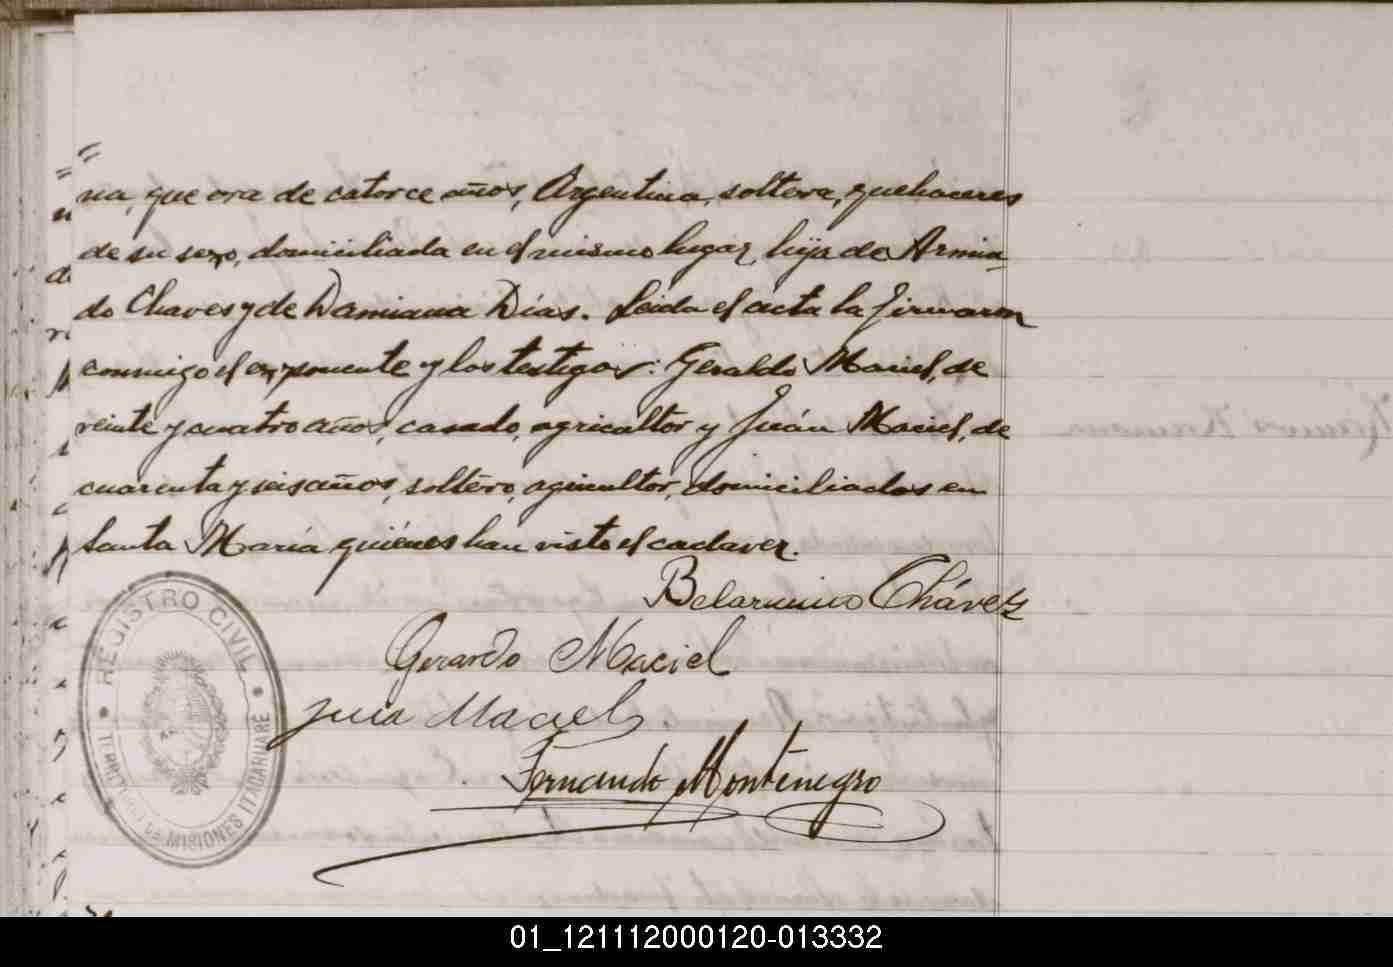 na, que era de catorce años, Argentina, soltera, quehaceres
de su sexo, domiciliada en el mismo lugar, hija de Arman
do Chaves y de Damiana Días. Leida el acta la firmaron
conmigo el exponente y los testigos: Geraldo Maciel, de
veinte y cuatro años, casado, agricultor y Juán Maciel, de
cuarenta y seis años, soltéro, agricultor, domiciliados en
Santa María quiénes han visto el cadaver.
Belarmino Chávez
Gerardo Maciel
Juan Maciel
Fernando Montenegro
REGISTRO CIVIL
MISIONES ITACARUARE
01_121112000120-013332